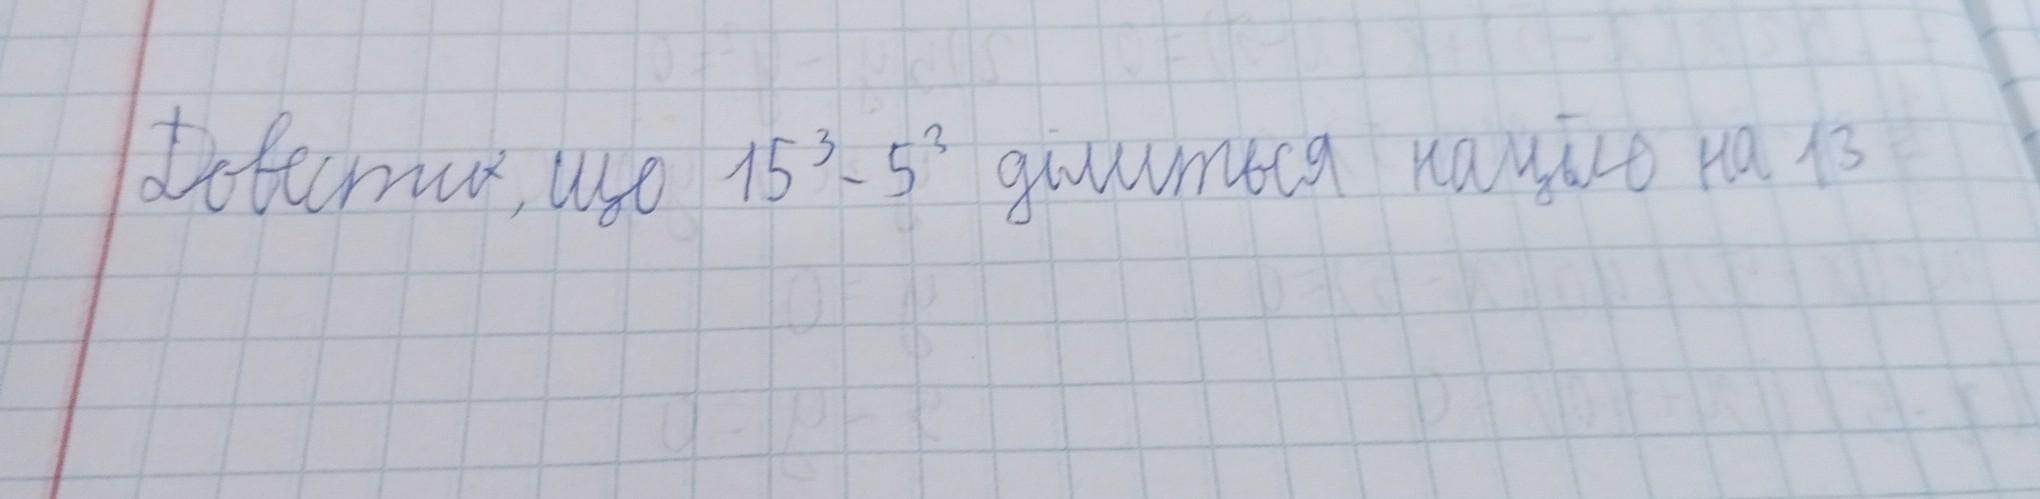 Довести, що 15³ - 5³ ділиться націло на 13